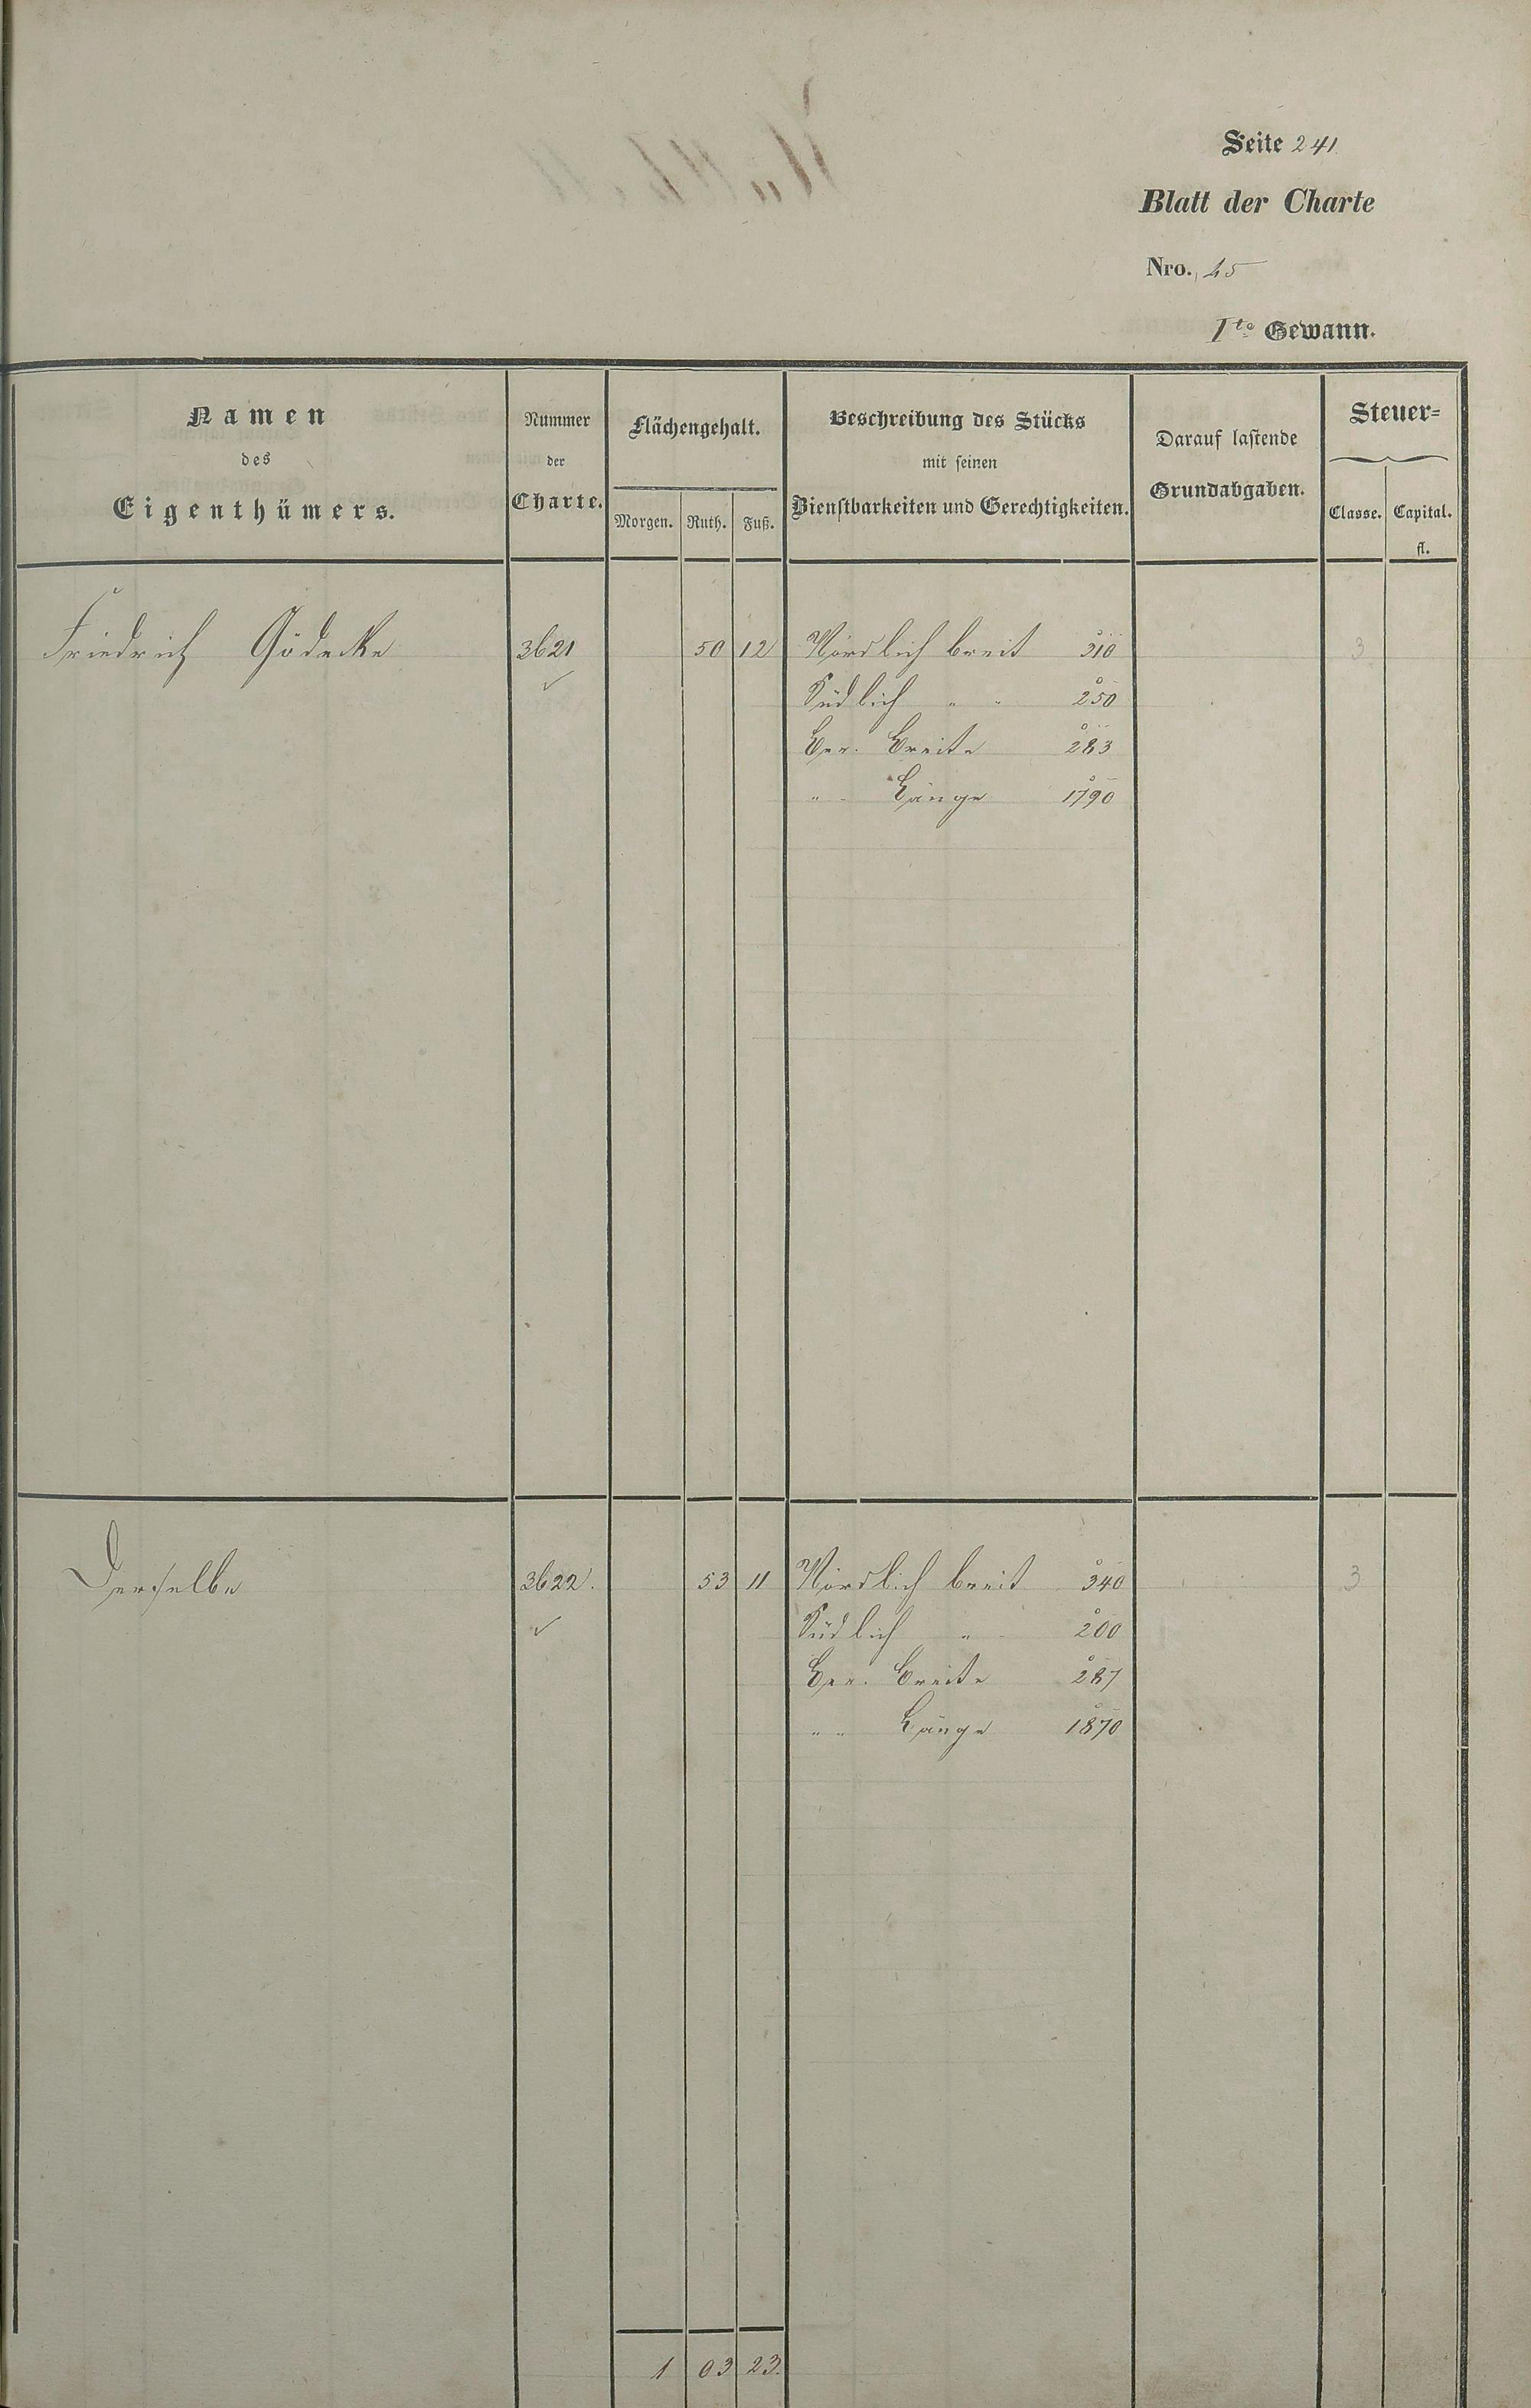 Seite 241
Blatt der Charte
Nro. 25
1te Gewann.
Namen
des
Eigenthümers.
Nummer
der
Charte.
Flächengehalt.
Morgen. Ruth. Fuß.
Beschreibung des Stücks
mit seinen
Dienstbarkeiten und Gerechtigkeiten.
Darauf lastende
Grundabgaben.
Steuer=
Classe. Capital.
fl.
Friedrich Gödecke 3621 50 12 Nördlich breit 310 3
Südlich " " 250
Ber. Breite 283
" " Länge 1790
Derselbe 3622. 53 11 Nördlich breit 340 3
Südlich " 200
Ber. Breite 287
" " Länge 1870
1 03 23.